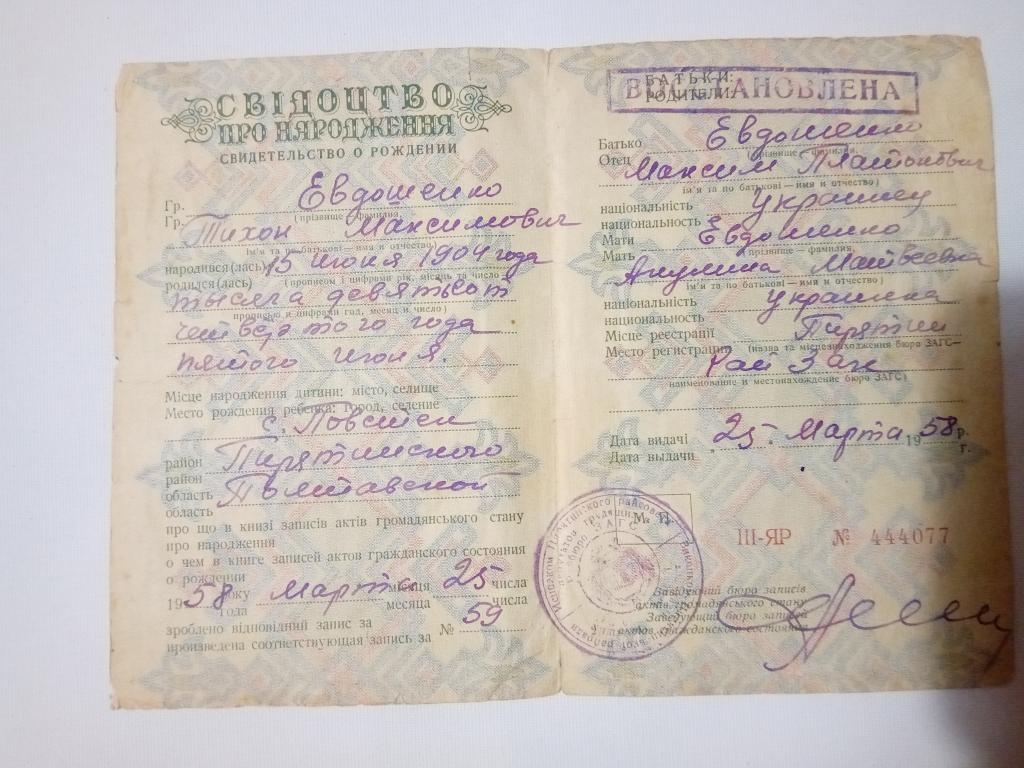 СВІДОЦТВО
ПРО НАРОДЖЕННЯ
СВИДЕТЕЛЬСТВО О РОЖДЕНИИ
Гр. Евдошенко
Гр. (прізвище — фамилия)
Тихон Максимович
ім'я та по батькові — имя и отчество)
народився(лась) 15 июня 1904 года
родился(лась) (прописом і цифрами рік, місяць та число —
тысяча девятьсот
прописью и цифрами год, месяц и число)
четвертого года
пятого июня.
Місце народження дитини: місто, селище
Место рождения ребенка: город, селение
с. Повстин
район Пирятинского
район
область Полтавской
область
про що в книзі записів актів громадянського стану
про народження
о чем в книге записей актов гражданского состояния
о рождении
1958 року Марта місяця 25 числа
года месяца числа
зроблено відповідний запис за № 59
произведена соответствующая запись за
БАТЬКИ:
РОДИТЕЛИ:
ВІДНОВЛЕНА
Батько Евдошенко
Отец (прізвище — фамилия)
Максим Платонович
ім'я та по батькові — имя и отчество)
національність Украинец
национальность
Мати Евдошенко
Мать (прізвище — фамилия)
Акулина Матвеевна
ім'я та по батькові — имя и отчество)
національність украинка
национальность
Місце реєстрації Пирятин
Место регистрации (назва та місцезнаходження бюро ЗАГС—
Рай Загс
наименование и местонахождение бюро ЗАГС)
Дата видачі 25 Марта 1958 р.
Дата выдачи г.
М. П.
III-ЯР № 444077
Завідуючий бюро записів
актів громадянського стану
Заведующий бюро записей
актов гражданского состояния